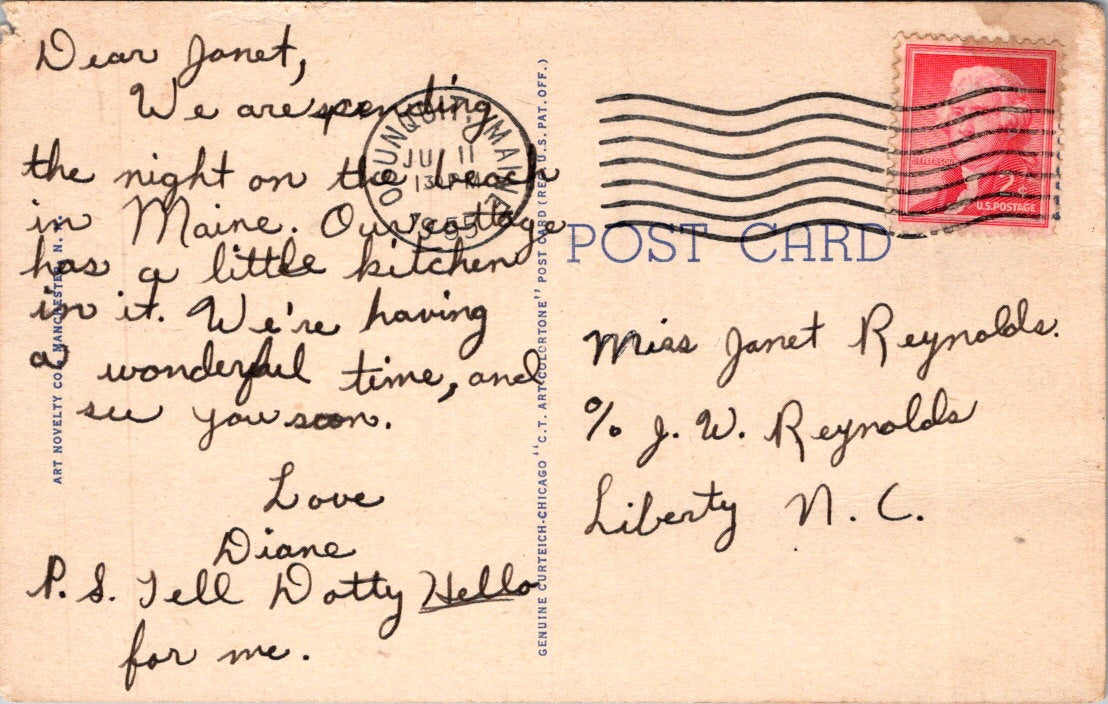 Dear Janet,
We are spending
the night on the beach
in Maine. Our cottage
has a little kitchen
in it. We're having
a wonderful time, and
see you soon.
Love
Diane
P. S. Tell Dotty Hello
for me.
ART NOVELTY CO., MANCHESTER, N. H.
GENUINE CURTEICH-CHICAGO "C.T. ART-COLORTONE" POST CARD (REG. U.S. PAT. OFF.)
OGUNQUIT, MAINE
JUL 11
PM
1955
JEFFERSON
2¢
U.S. POSTAGE
POST CARD
Miss Janet Reynolds.
% J. W. Reynolds
Liberty N. C.